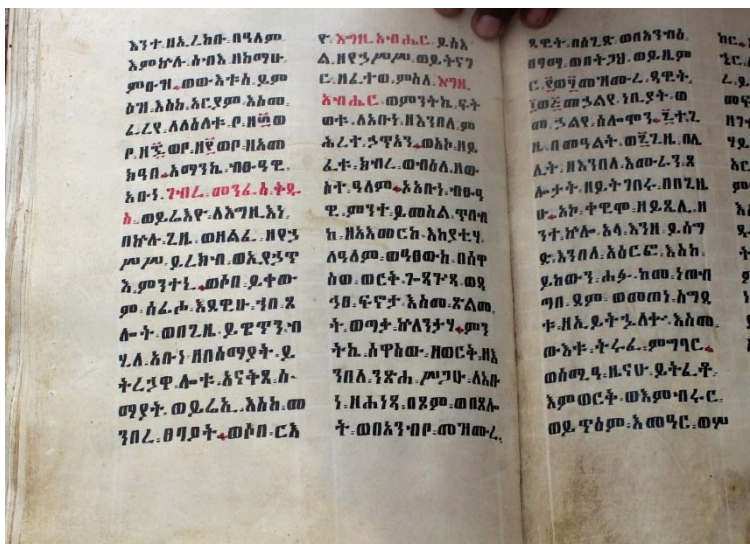 እንተ፡ዘኢረከቡ፡በዓለም
እምኵሉ፡ሰብእ፡ዘከማሁ፡
ምዑዝ፡ወውእቱሰ፡ይም
ዕዝ፡እስከ፡አርያም፡እስመ፡
ፈረየ፡ለለዕለቱ፡ቦ፡ዘ፴ወ
ቦ፡ዘ፷፡ወቦ፡ዘ፻ወቦ፡ዘአመ
ክዓበ፡አማንኬ፡ብፁዓዊ፡
አቡነ፡ገብረ፡መንፈስ፡ቅዱ
ስ፡ወይሬእዮ፡ለእግዚእነ፡
በኵሉ፡ጊዜ፡ወዘልፈ፡ዘየኃ
ሥሥ፡ይረክብ፡ወአያኃጥ
እ፡ምንተኒ፡ወሶበ፡ይቀው
ም፡ሰፊሖ፡እደዊሁ፡ኀበ፡ጸ
ሎት፡ወበጊዜ፡ይዌጥን፡ብ
ሂለ፡አቡነ፡ዘበሰማያት፡ይ
ትረኃዋ፡ሎቱ፡አናቅጸ፡ሰ
ማያት፡ወይሬኢ፡እስከ፡መ
ንበረ፡ፀባዖት፡ወሶበ፡ርእ
ዮ፡እግዚአብሔር፡ይስአ
ል፡ዘየኃሥሥ፡ወይትናገ
ር፡ዘፈተወ፡ምስለ፡እግዚ
አብሔር፡ወምንትኬ፡ፍት
ወቱ፡ለአቡነ፡ዘእንበለ፡ም
ሕረት፡ኃጥአን፡ወአኮ፡ዘይ
ፈቱ፡ክብረ፡ወብዕለ፡ዘው
ስተ፡ዓለም፡ኦአቡነ፡ብፁዓ
ዊ፡ምንተ፡ይመስል፡ጥበብ
ከ፡ዘአእመርከ፡እከያቲሃ፡
ለዓለም፡ወዓፀውከ፡በሰዋ
ስወ፡ወርቅ፡
ፍኖታ፡እስመ፡ጽልመ
ት፡ወጣታ፡ኵለንታሃ፡ምን
ትኬ፡ሰዋስው፡ዘወርቅ፡ዘእ
ንበለ፡ንጽሐ፡ሥጋሁ፡ለአቡ
ነ፡ዘሐነጻ፡በጾም፡ወበጸሎ
ት፡ወበአንብቦ፡መዝሙረ፡
ዳዊት፡በሰጊድ፡ወበአንብዕ፡
በፃማ፡ወበትጋህ፡ወይዚም
ር፡መዝሙረ፡ዳዊት፡
መኃልየ፡ነቢያት፡ወ
መኃልየ፡ሰሎሞን፡
ዜ፡በመዓልት፡ወ፯ጊዜ፡በሌ
ሊት፡ዘእንበለ፡እሙራን፡ጸ
ሎታት፡ዘይትገበሩ፡በበጊዜ
ሁ፡አኮ፡ቀዊሞ፡ዘይጼሊ፡ዘ
ንተ፡ኵሎ፡አላ፡እንዘ፡ይሰግ
ድ፡እንበለ፡አዕርፎ፡እስከ፡
ይከውን፡ሐፉ፡ከመ፡ነጠብ
ጣበ፡ደም፡ወመጠነ፡ስግደ
ቱ፡ዘኢይትኌለቍ፡እስመ፡
ውእቱ፡ትሩፈ፡ምግባር፡
ወሰሚዓ፡ዜናሁ፡ይትፈቶ፡
እምወርቅ፡ወእምብሩር፡
ወይጥዕም፡እመዓር፡ወሦ